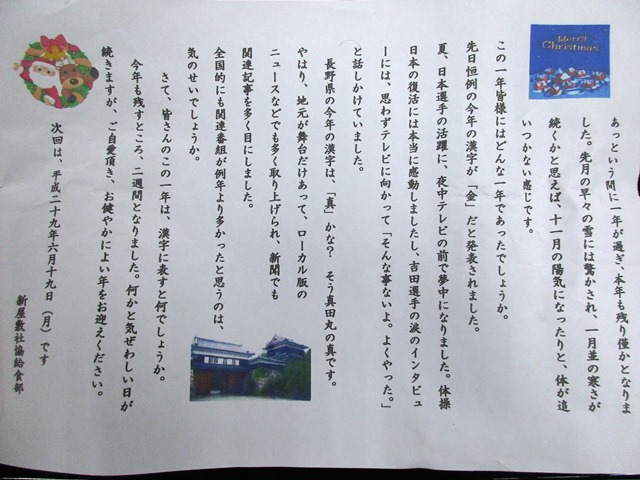 Merry
Christmas
あっという間に一年が過ぎ、本年も残り僅かとなりま
した。先月の早々の雪には驚かされ、一月並の寒さが
続くかと思えば、十一月の陽気になったりと、体が追
いつかない感じです。
この一年皆様にはどんな一年であったでしょうか。
先日恒例の今年の漢字が「金」だと発表されました。
夏、日本選手の活躍に、夜中テレビの前で夢中になりました。体操
日本の復活には本当に感動しましたし、吉田選手の涙のインタビュ
ーには、思わずテレビに向かって「そんな事ないよ。よくやった。」
と話しかけていました。
長野県の今年の漢字は、「真」かな? そう真田丸の真です。
やはり、地元が舞台だけあって、ローカル版の
ニュースなどでも多く取り上げられ、新聞でも
関連記事を多く目にしました。
全国的にも関連番組が例年より多かったと思うのは、
気のせいでしょうか。
さて、皆さんのこの一年は、漢字に表すと何でしょうか。
今年も残すところ、二週間となりました。何かと気ぜわしい日が
続きますが、ご自愛頂き、お健やかによい年をお迎えください。
次回は、平成二十九年六月十九日(月)です
新屋敷社協給食部